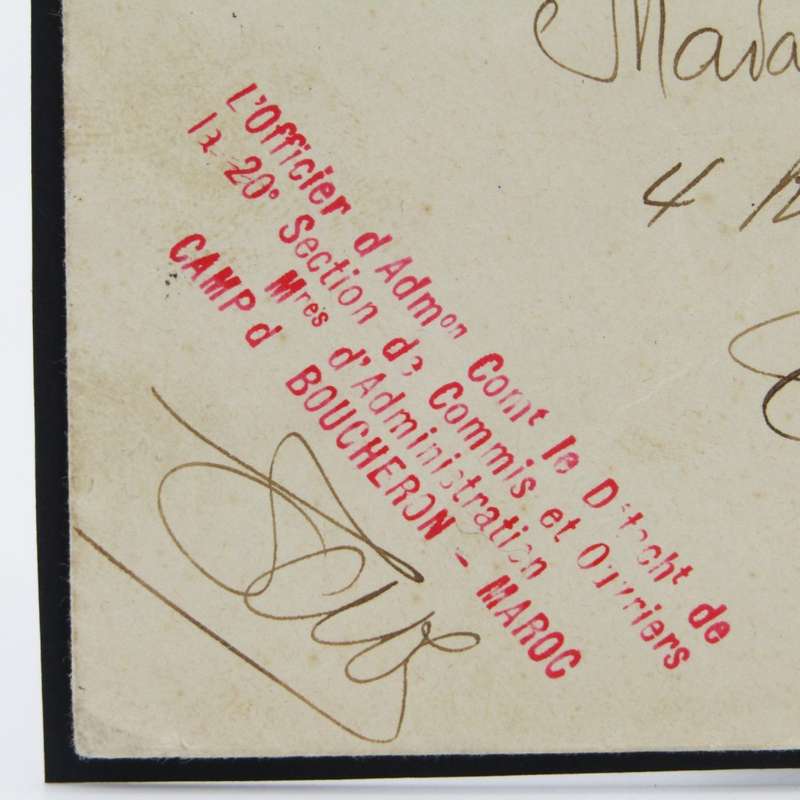 Mada
4
L'Officier d'Admon Comt le Détacht de
la 20e Section de Commis et Ouvriers
Mres d'Administration
CAMP d BOUCHERON - MAROC